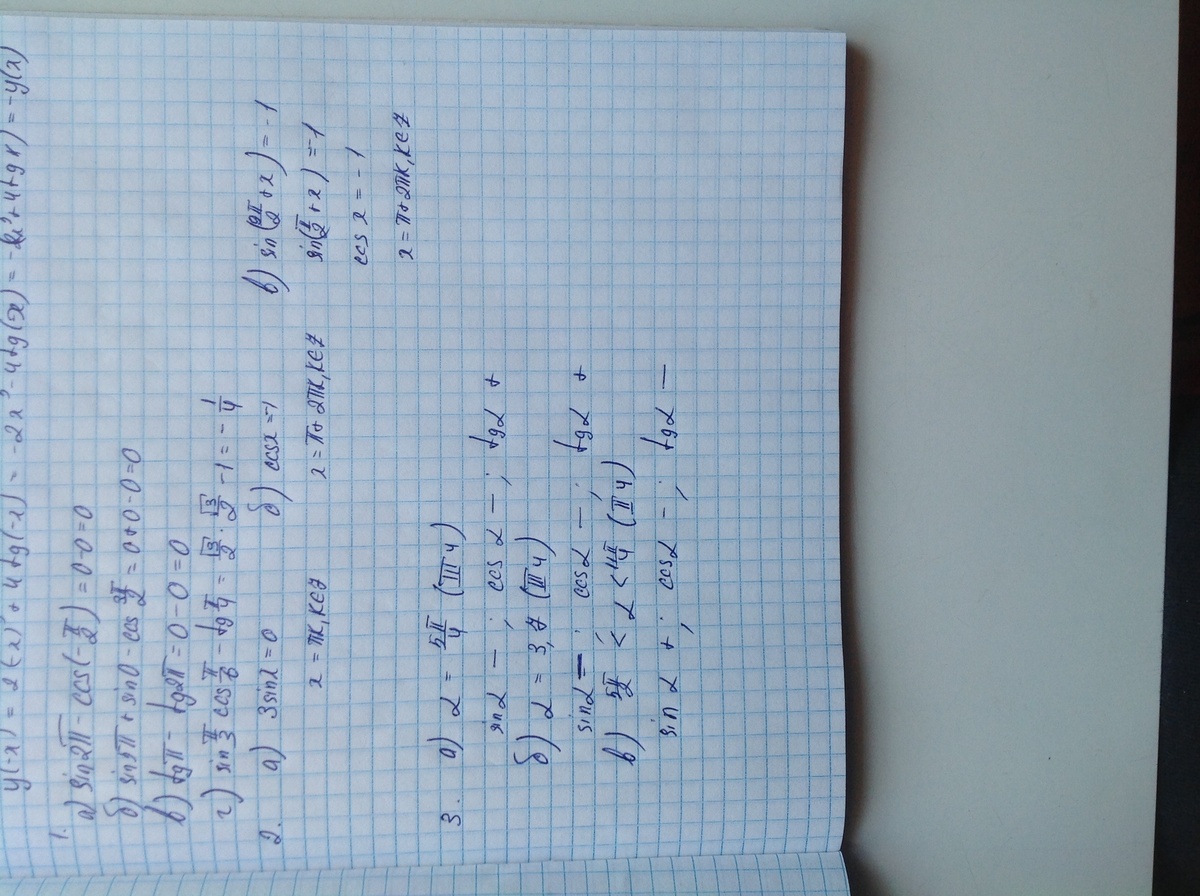 y(-x) = 2(-x)³ + 4tg(-x) = -2x³ - 4tg(x) = -(2x³ + 4tgx) = -y(x)
1.
а) sin2π - cos(-π/2) = 0-0=0
б) sin5π + sin0 - cos 3π/2 = 0+0-0=0
в) tgπ - tg2π = 0-0=0
г) sin π/3 cos π/6 - tg π/4 = √3/2 · √3/2 - 1 = - 1/4
2. а) 3sinx=0 б) cosx=-1 в) sin(9π/2 + x) = -1
x = πk, k∈Z x = π+2πk, k∈Z sin(π/2 + x) = -1
cos x = -1
x = π+2πk, k∈Z
3. а) α = 5π/4 (III ч)
sinα - ; cosα - ; tgα +
б) α = 3,7 (III ч)
sinα - ; cosα - ; tgα +
в) 5π/2 < α < 11π/4 (II ч)
sinα + ; cosα - ; tgα -